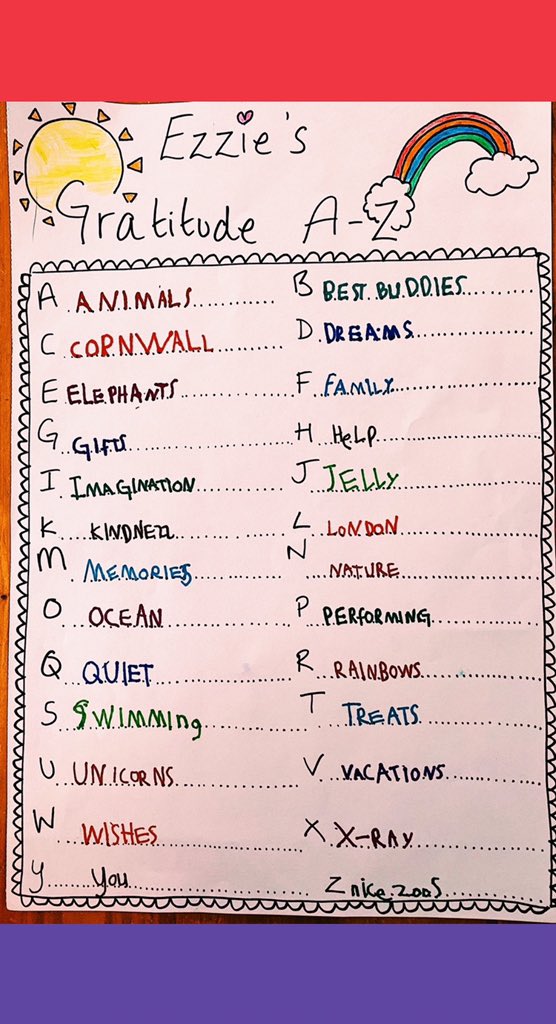 Ezzie's
Gratitude A-Z
A ANIMALS B BEST BUDDIES
C CORNWALL D DREAMS
E ELEPHANTS F FAMILY
G GIFTS H HeLP
I IMAGINATION J JELLY
K KINDNEZZ L LONDON
M MEMORIES N NATURE
O OCEAN P PERFORMING
Q QUIET R RAINBOWS
S SWIMMIng T TREATS
U UNICORNS V VACATIONS
W WISHES X X-RAY
y you Z nice zoos